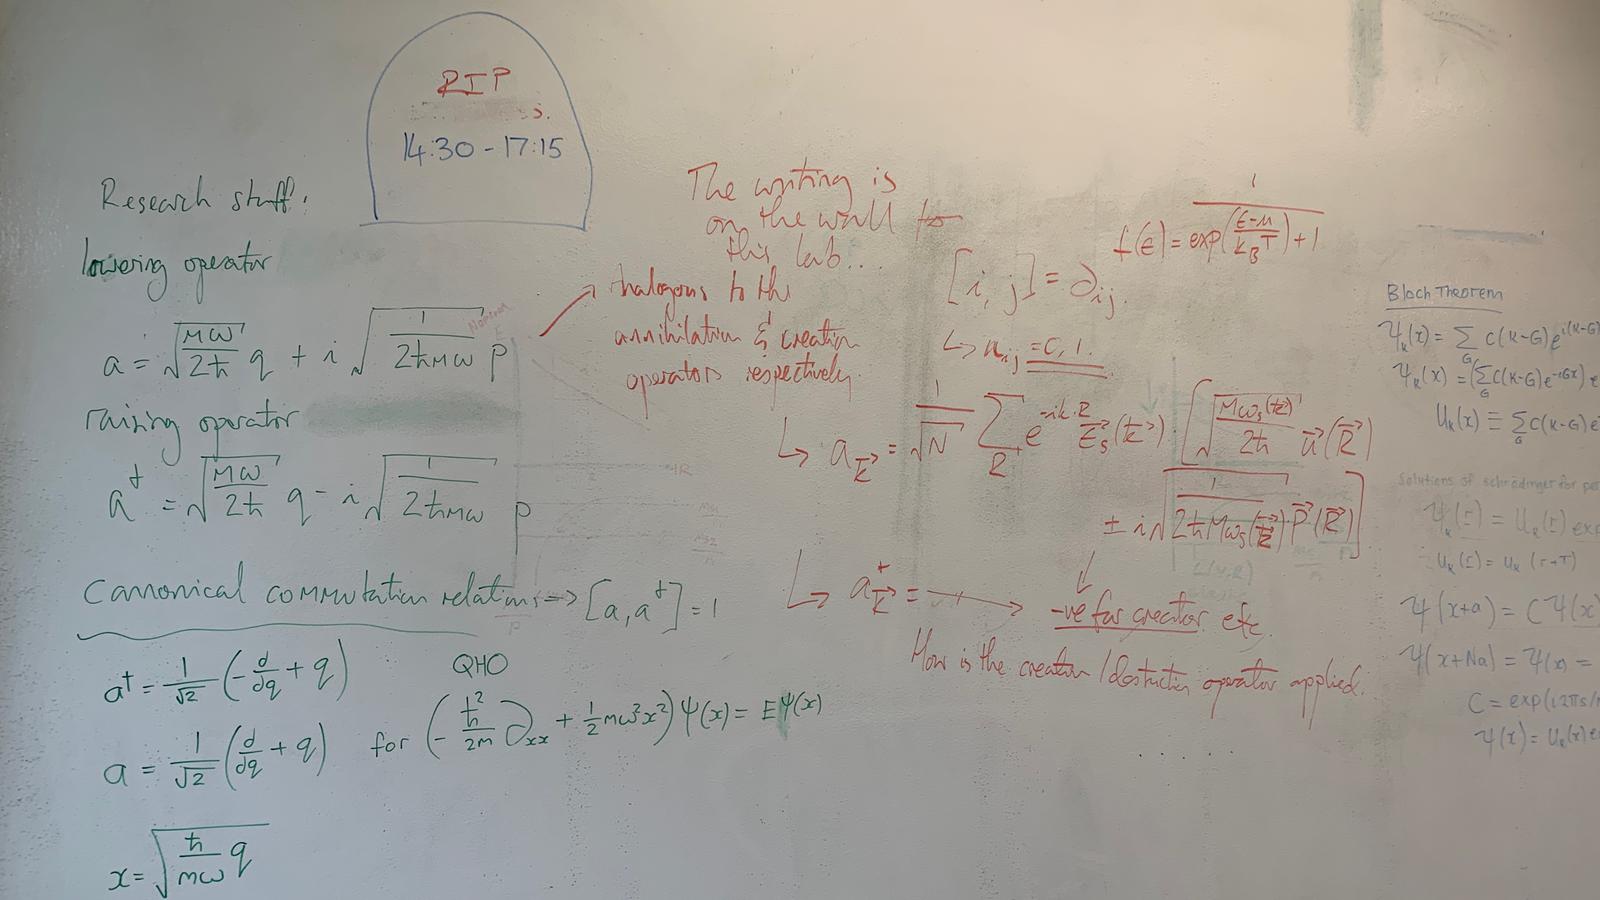 RIP
14:30 - 17:15
Research stuff:
lowering operator
a = √(Mω/2ħ) q + i √(1/2ħMω) p
raising operator
a† = √(Mω/2ħ) q - i √(1/2ħMω) p
Canonical commutation relations → [a, a†] = 1
a† = 1/√2 (-d/dq + q)
a = 1/√2 (d/dq + q)
x = √(ħ/mω) q
QHO
for (-ħ²/2m ∂xx + 1/2 mω²x²) Ψ(x) = E Ψ(x)
The writing is
on the wall to
this lab...
to the
annihilation & creation
operators respectively.
[i, j] = ∂ij.
↳ nij = 0, 1.
f(ε) = 1/(exp((ε-μ)/kBT) + 1)
↳ a_k→ = 1/√N Σ_R e^(-ik·R) E→s(k→) · [√(Mωs(k→)/2ħ) u→(R→)
± i √(1/2ħMωs(k→)) P→(R→)]
↳ a†_k→ = → -ve for creator etc
How is the creation/destruction operator applied.
Bloch Theorem
Ψk(x) = Σ_G C(k-G) e^i(k-G)
Ψk(x) = (Σ_G C(k-G) e^-iGx) e
Uk(x) ≡ Σ_G C(k-G) e
Solutions of schrödinger for
Ψk(r) = Uk(r) exp
Uk(r) = uk (r+T)
Ψ(x+a) = CΨ(x)
Ψ(x+Na) = Ψ(x) =
C = exp(i2πs/
Ψ(x) = Uk(x) e